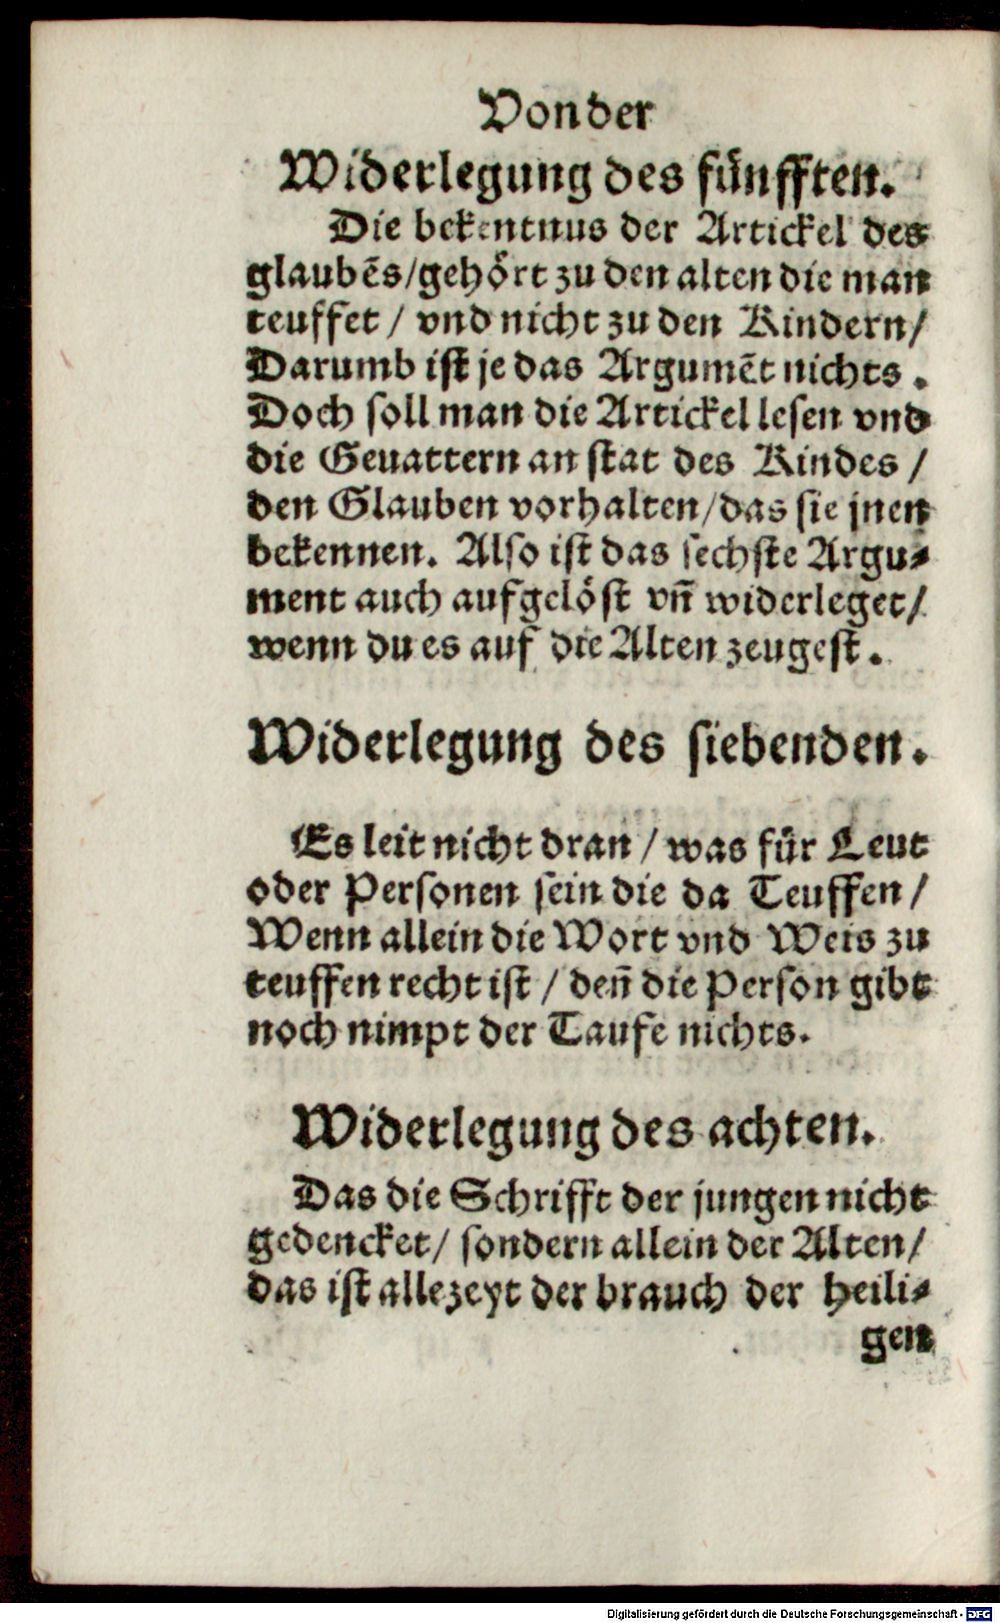 Von der
Widerlegung des fünfften.
Die bekentnus der Artickel des
glaubẽs/gehört zu den alten die man
teuffet / vnd nicht zu den Kindern/
Darumb ist je das Argumẽt nichts.
Doch soll man die Artickel lesen vnd
die Geuattern an stat des Kindes /
den Glauben vorhalten/das sie jnen
bekennen. Also ist das sechste Argu-
ment auch aufgelöst vñ widerleget/
wenn du es auf die Alten zeugest.
Widerlegung des siebenden.
Es leit nicht dran / was für Leut
oder Personen sein die da Teuffen/
Wenn allein die Wort vnd Weis zu
teuffen recht ist / deñ die Person gibt
noch nimpt der Taufe nichts.
Widerlegung des achten.
Das die Schrifft der jungen nicht
gedencket/ sondern allein der Alten/
das ist allezeyt der brauch der Heili-
gen
Digitalisierung gefördert durch die Deutsche Forschungsgemeinschaft - DFG